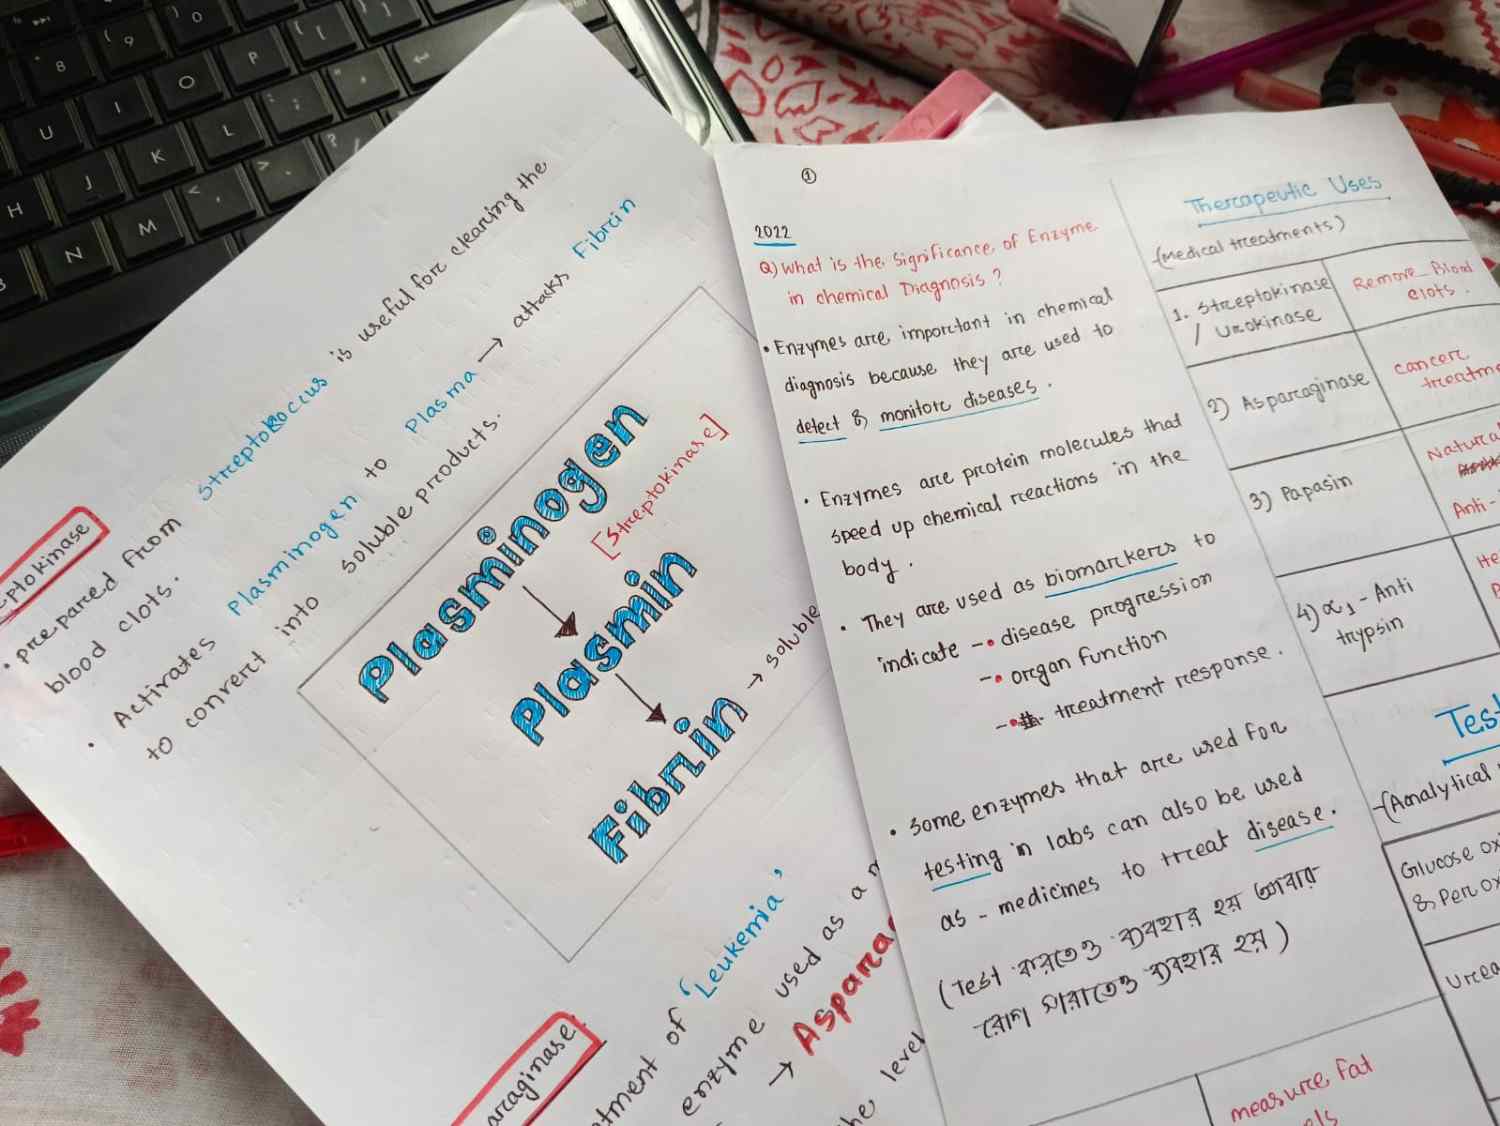 eptokinase
• prepared from Streptokoccus is useful for clearing the
blood clots.
• Activates Plasminogen to Plasma → attacks Fibrin
to convert into soluble products.
Plasminogen
[Streptokinase]
Plasmin
Fibrin → soluble
araginase
tment of 'Leukemia'
enzyme used as a
→ Aspara
he level
①
2022
Q) What is the Significance of Enzyme
in chemical Diagnosis ?
• Enzymes are important in chemical
diagnosis because they are used to
detect & monitor diseases.
• Enzymes are protein molecules that
speed up chemical reactions in the
body.
• They are used as biomarkers to
indicate -• disease progression
-• organ function
-• treatment response.
• Some enzymes that are used for
testing in labs can also be used
as - medicines to treat disease.
(Test করতেও ব্যবহার হয় আবার
রোগ সারাতেও ব্যবহার হয়)
Therapeutic Uses
(medical treatments)
1. Streptokinase
/ Urokinase
Remove Blood
clots.
2) Asparaginase
cancer
treatme
3) Papasin
Natural
Anti-
4) α1 - Anti
trypsin
He
Test
-(Analytical
Glucose ox
& Perox
Urea
measure fat
els